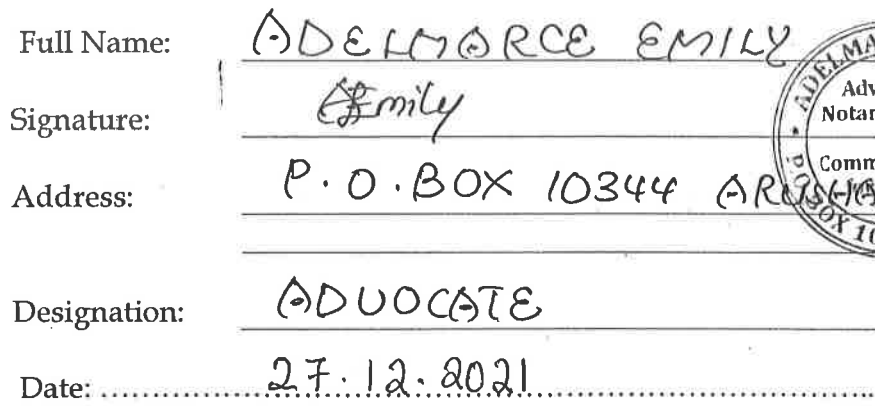 Full Name: ADELMARCE EMILY
Signature: AEmily
Address: P.O.BOX 10344 ARUSHA
Designation: ADVOCATE
Date: 27.12.2021
ADELMA
Adv
Notar
Comm
P.O BOX 10